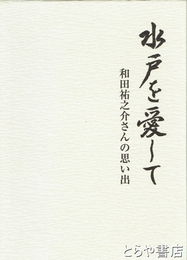 水戸を愛して
和田祐之介さんの思い出
とらや書店